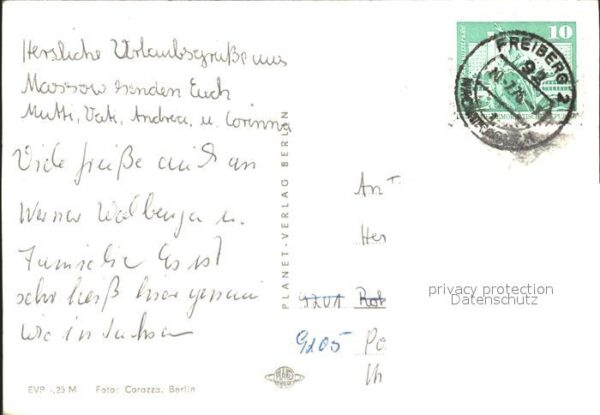 Herzliche Urlaubsgrüße aus
Massow senden Euch
Mutti, Vati, Andrea, u. Corinna
Viele Grüße auch an
Werner u.
Familie Es ist
sehr heiß hier genau
wie in Sachsen
EVP -,25 M Foto: Corazza, Berlin
PLANET-VERLAG BERLIN
10
FREIBERG 2
92
An
Her
9201
9205 Po
privacy protection
Datenschutz